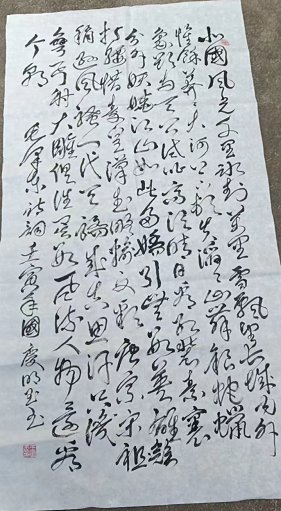 北國風光千里冰封萬里雪飄望長城内外
惟餘莽々大河上下頓失滔々山舞銀蛇蠟
象欲與天公試比高須晴日看紅裝素裹
分外妖嬈江山如此多嬌引無數英雄競
折腰惜秦皇漢武略輸文采唐宗宋祖
稍遜風騷一代天驕成吉思汗只識
彎弓射大雕俱往矣數風流人物還看
今朝 毛澤東詩詞壬寅年國慶明玉书